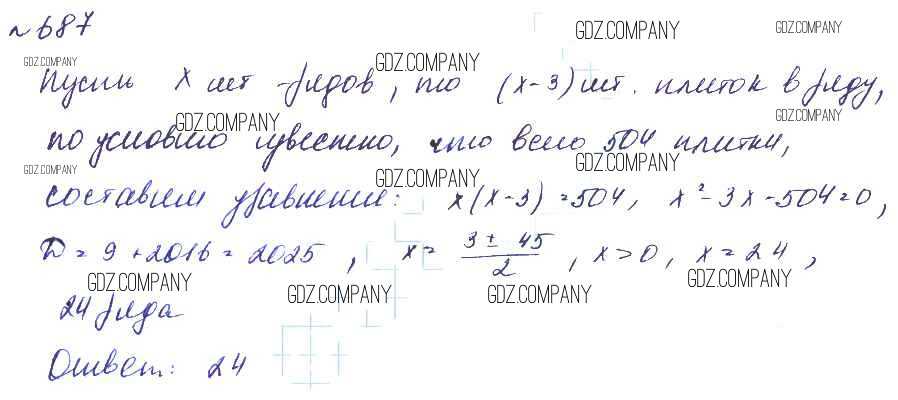 №687
Пусть x шт рядов, то (x-3) шт. плиток в ряду,
по условию известно, что всего 504 плитки,
составим уравнение: x(x-3)=504, x²-3x-504=0,
D=9+2016=2025, x=\frac{3±45}{2}, x>0, x=24,
24 ряда
Ответ: 24
GDZ.COMPANY GDZ.COMPANY
GDZ.COMPANY GDZ.COMPANY
GDZ.COMPANY GDZ.COMPANY
GDZ.COMPANY GDZ.COMPANY GDZ.COMPANY
GDZ.COMPANY GDZ.COMPANY
GDZ.COMPANY GDZ.COMPANY